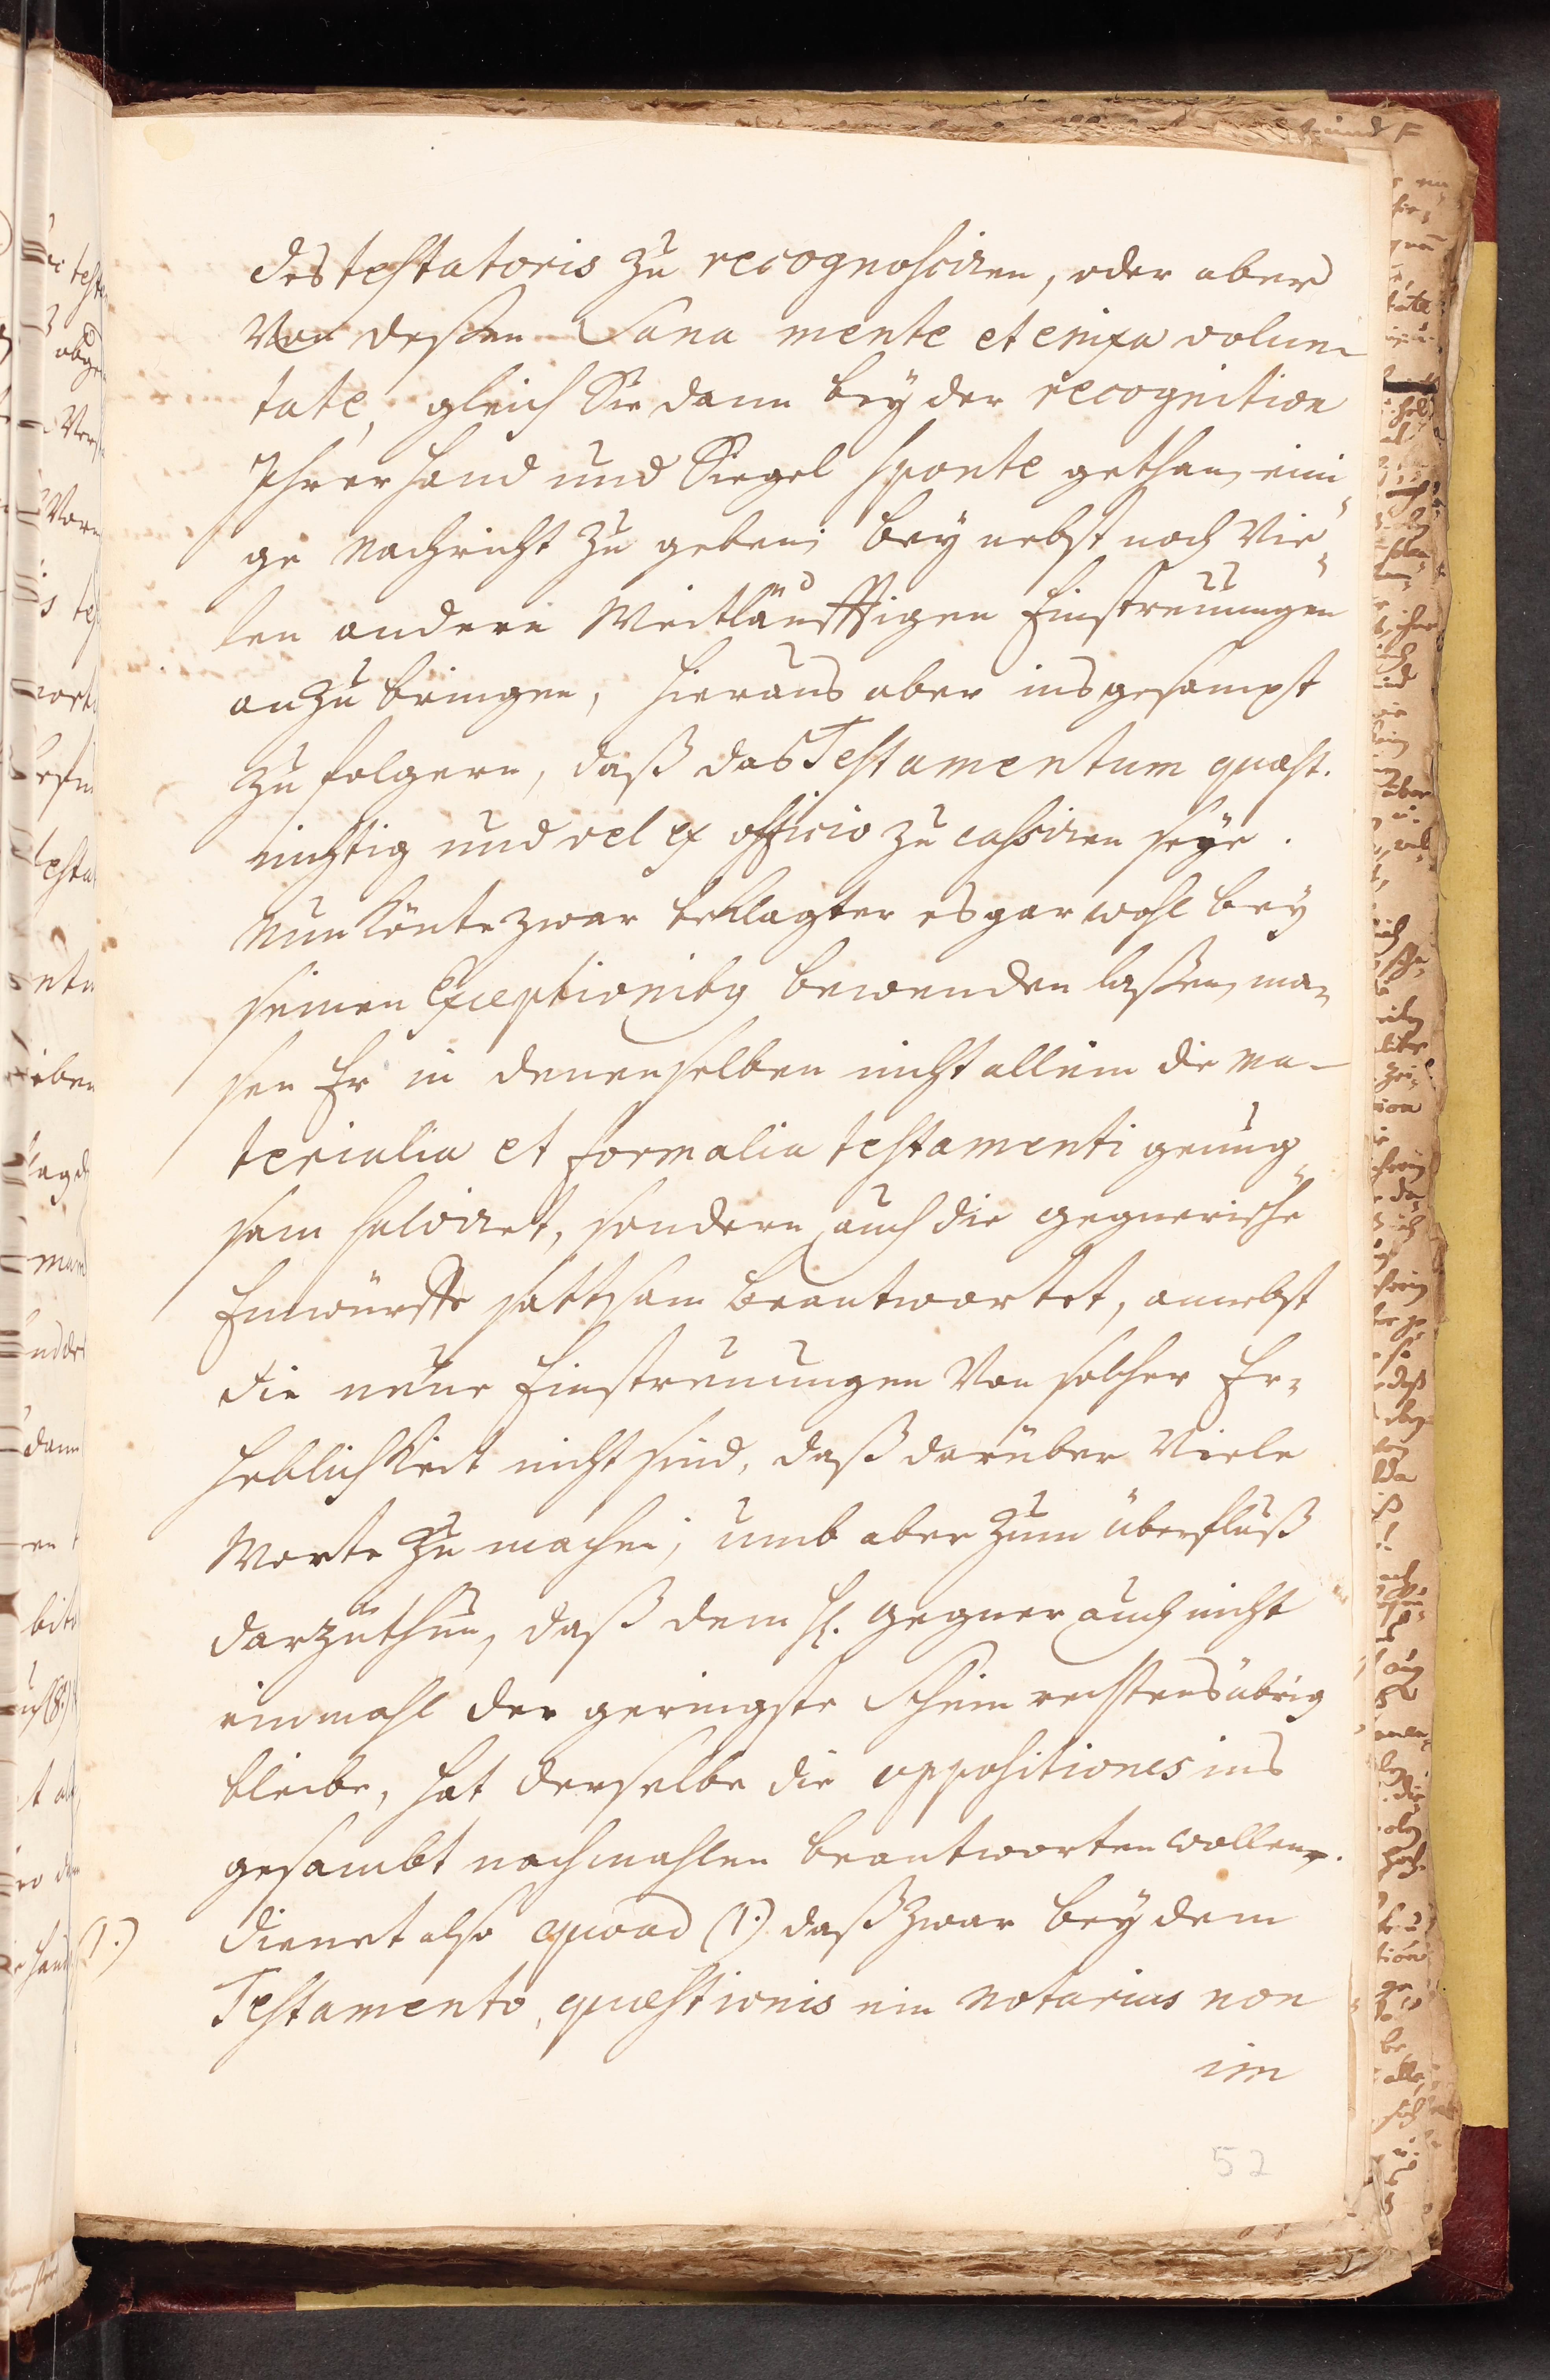 des testatoris zu recognosciren, oder aber
Von deßen Sana mente et enixa volun
tate, gleich Sie dann bey der recognition
Ihrer Hand und Siegel sponte gethan, eini„
ge Nachricht zu geben; bey nebst noch Vie„
len andern Weitläuffigen Einstreuungen
anzubringen, hieraus aber ins gesampt
zu folgern, daß das Testamentum quæst.
nichtig und vel ex officio zu cassiren seye.
Nun könte zwar beklagter es gar wohl bey
seinen Exceptionibq bewenden laßen, ma„
sen Er in denenselben nicht allein die ma-
terialia et formalia testamenti genug„
sam salviret, sondern auch die gegnerische
Einwürffe sattsam beantwortet, anebst
die neue Einstreuungen Von solcher Er„
heblichkeit nicht sind, daß darüber Viele
Worte zu machen; umb aber zum überfluß
darzuthun, daß dem H. Gegner auch nicht
einmahl der geringste Schein rechtens übrig
bleibe, hat derselbe die oppositiones ins
gesambt nachmahlen beantworten wollen.
(1.) Dienet also quoad (1.) daß zwar bey dem
Testamento quæstionis ein Notarius non
im
52